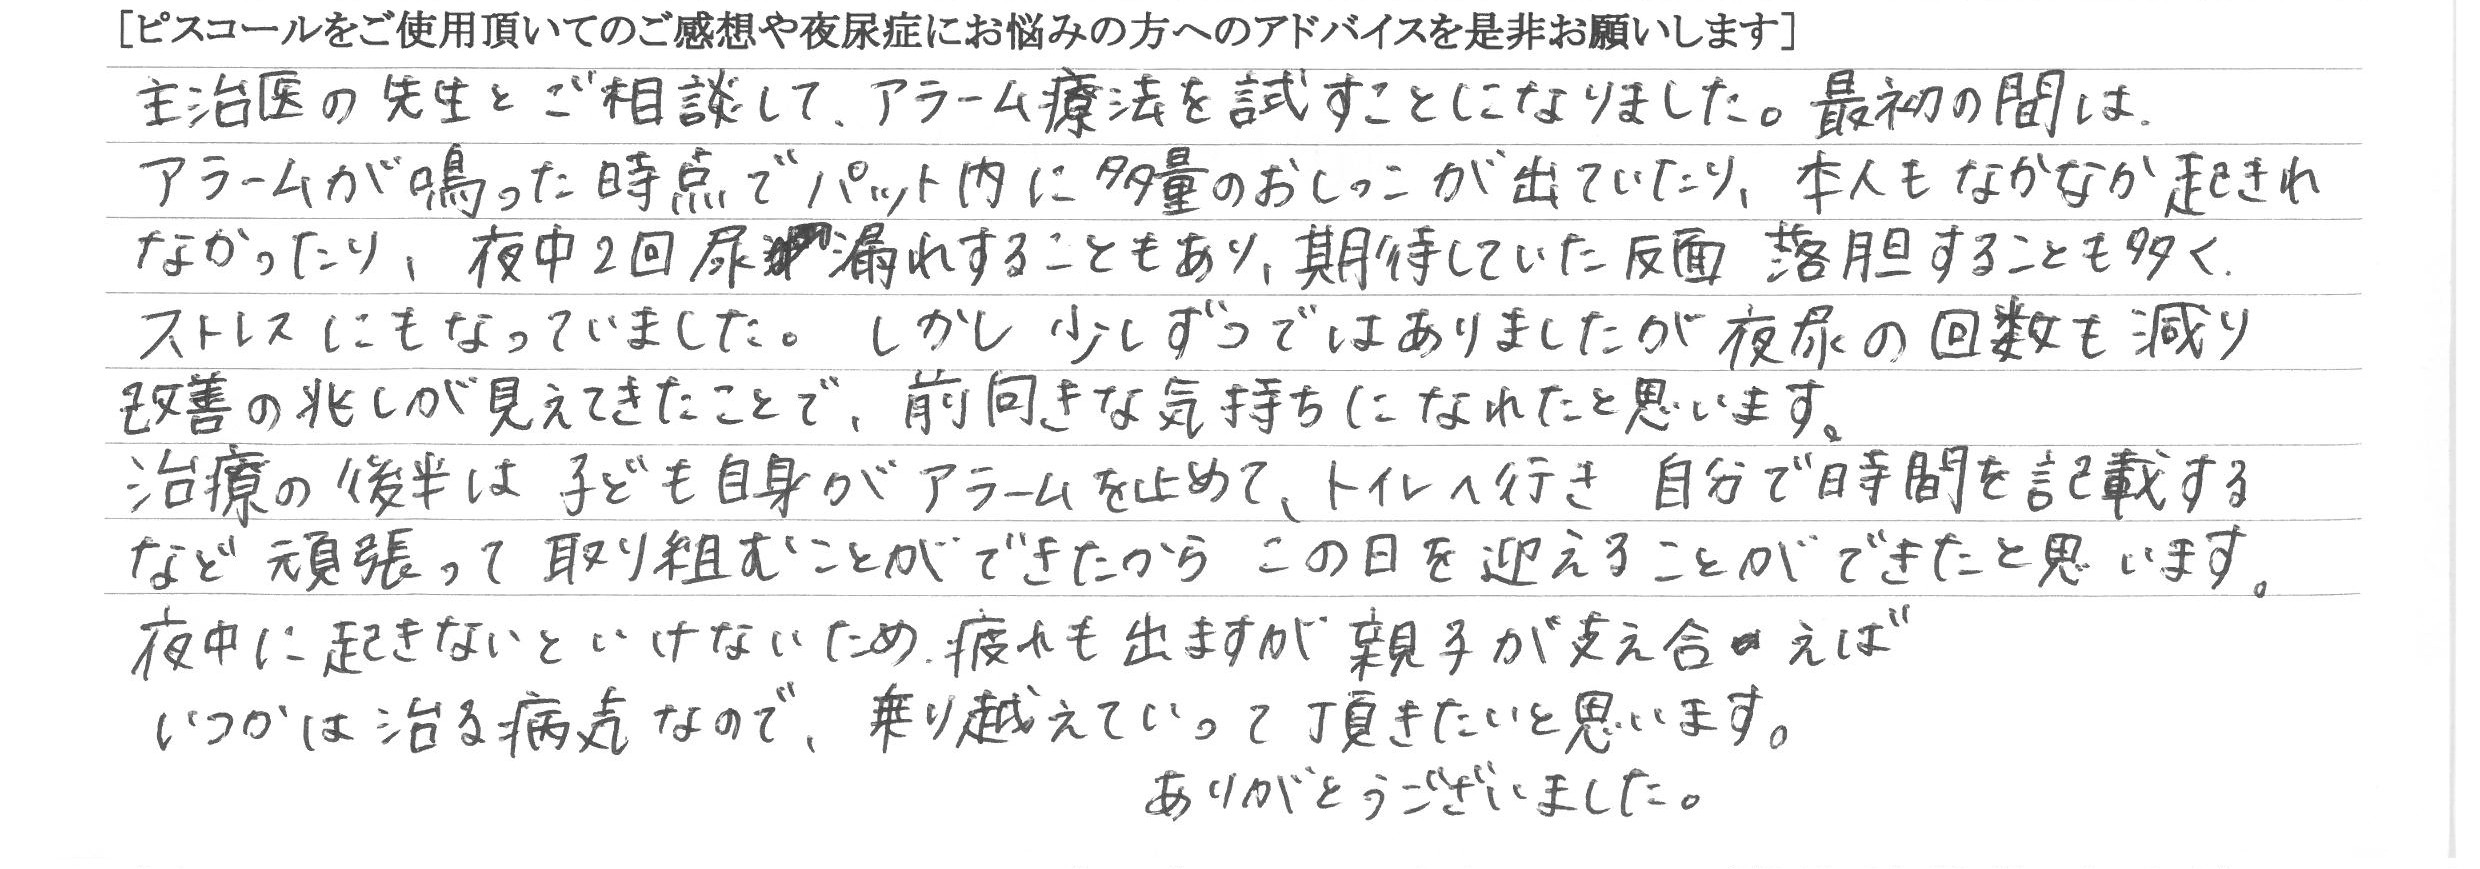 [ピスコールをご使用頂いてのご感想や夜尿症にお悩みの方へのアドバイスを是非お願いします]
主治医の先生とご相談して、アラーム療法を試すことになりました。最初の間は、
アラームが鳴った時点でパット内に多量のおしっこが出ていたり、本人もなかなか起きれ
なかったり、夜中2回尿漏れすることもあり、期待していた反面 落胆することも多く、
ストレスにもなっていました。しかし 少しずつではありましたが夜尿の回数も減り
改善の兆しが見えてきたことで、前向きな気持ちになれたと思います。
治療の後半は 子ども自身がアラームを止めて、トイレへ行き 自分で時間を記載する
など頑張って取り組むことができたから この日を迎えることができたと思います。
夜中に起きないといけないため、疲れも出ますが親子が支え合えば
いつかは治る病気なので、乗り越えていって頂きたいと思います。
ありがとうございました。